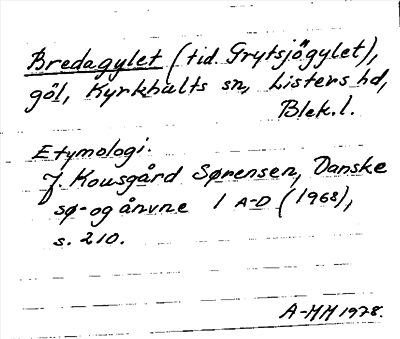 Bredagylet (tid. Grytsjögylet),
göl, Kyrkhults sn, Listers hd,
Blek.l.
Etymologi.
J. Kousgård Sørensen, Danske
sø- og ånvne 1 A-D (1968),
s. 210.
A-MH 1978.